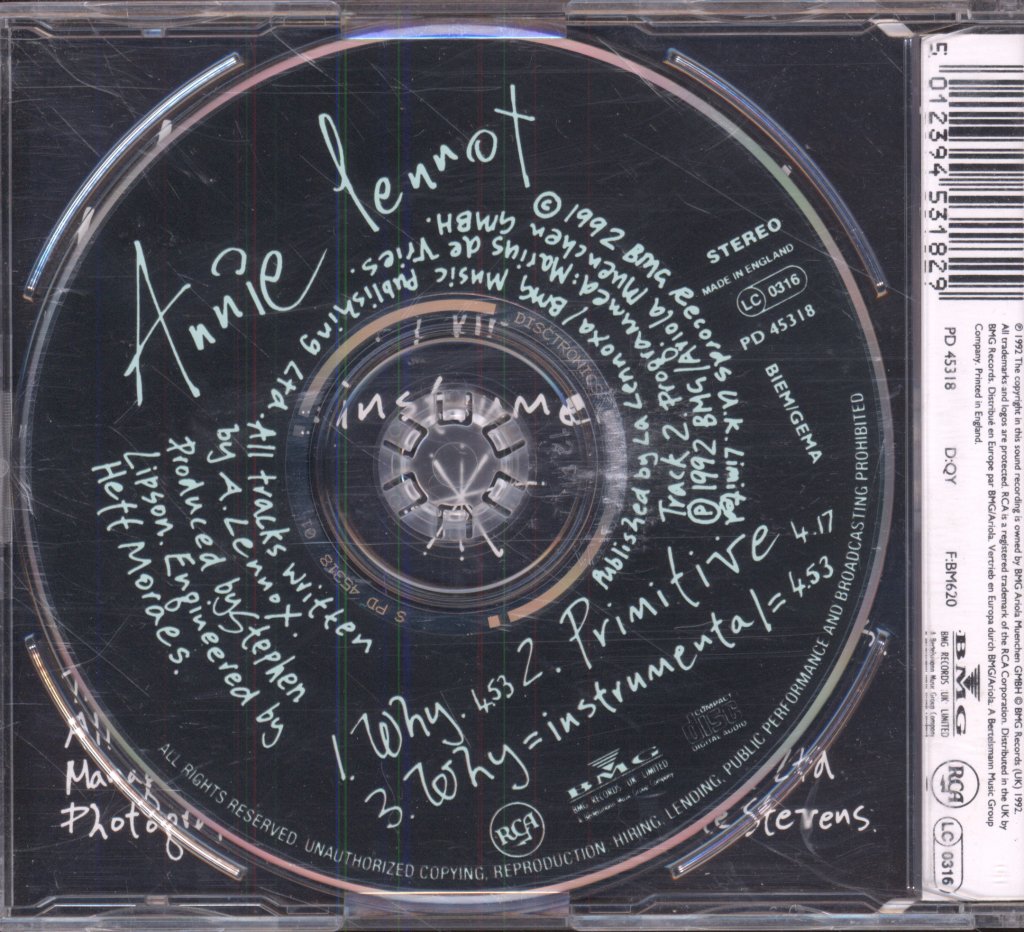 Annie Lennox
© 1992 BMG Records U.K. Limited.
℗ 1992 BMG/Ariola Muenchen GMBH.
Track 2 Programmed: Marius de Vries.
Published by La Lennoxa/BMG Music Publishing Ltd. All tracks written
by A Lennox.
Produced by Stephen
Lipson. Engineered by
Heff Moraes.
STEREO
MADE IN ENGLAND
LC 0316
PD 45318
BIEM/GEMA
1. Why. 4.53 2. Primitive 4.17
3. Why = instrumental = 4.53
COMPACT
disc
DIGITAL AUDIO
BMG
BMG RECORDS UK LIMITED
A Bertelsmann Music Group Company
RCA
ALL RIGHTS RESERVED. UNAUTHORIZED COPYING, REPRODUCTION, HIRING, LENDING, PUBLIC PERFORMANCE AND BROADCASTING PROHIBITED
DISCTRONICS
S PD 45318
instrume
All
Mana
Photogr
Ltd.
Stevens.
5 012394 531829
℗ 1992 The copyright in this sound recording is owned by BMG Ariola Muenchen GMBH © BMG Records (UK) 1992.
All trademarks and logos are protected. RCA is a registered trademark of the RCA Corporation. Distributed in the UK by
BMG Records. Distribué en Europe par BMG/Ariola. Vertrieb en Europa durch BMG/Ariola. A Bertelsmann Music Group
Company. Printed in England.
PD 45318 D:QY F:BM620
BMG
BMG RECORDS UK LIMITED
A Bertelsmann Music Group Company
RCA
LC 0316